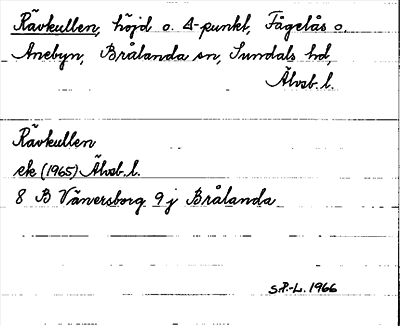 Rävkullen, höjd o. Δ-punkt, Fågelås o.
Anebyn, Brålanda sn, Sundals hd,
Älvsb. l.
Rävkullen
ek (1965) Älvsb. l.
8 B Vänersborg 9 j Brålanda
S.P.-L. 1966